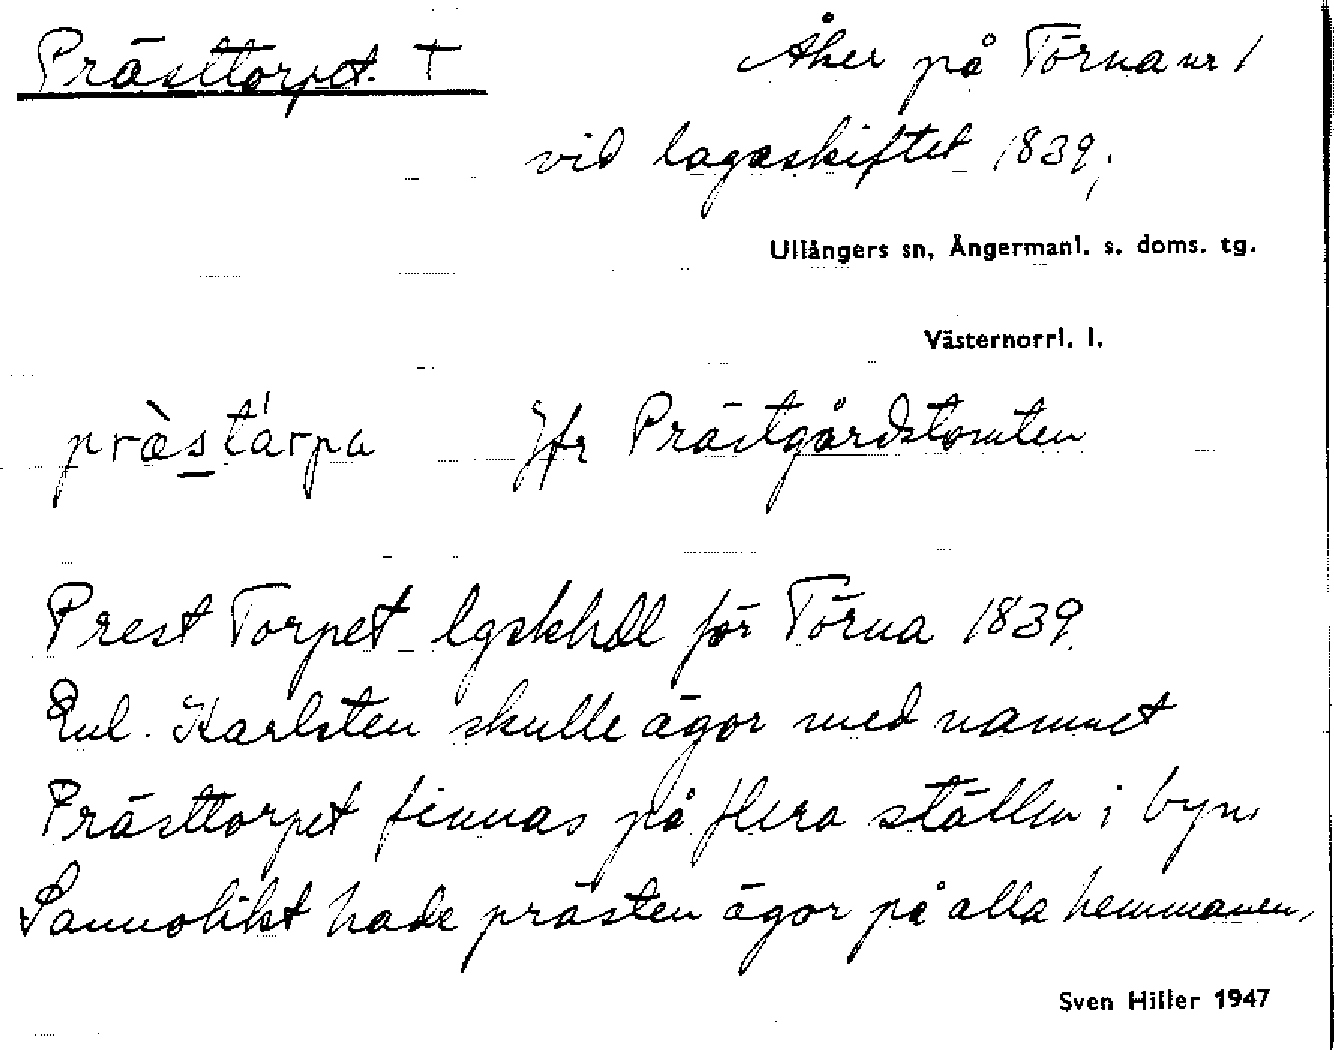 Prästtorpet. † Åker på Törna nr 1
vid lagaskiftet 1839.
Ullångers sn, Ångermanl. s. doms. tg.
Västernorrl. l.
præ̀stárpa Jfr Prästgårdstomten
Prest Torpet lgskhdl för Törna 1839.
Enl. Karlsten skulle ägor med namnet
Prästtorpet finnas på flera ställen i byn.
Sannolikt hade prästen ägor på alla hemmanen.
Sven Hiller 1947